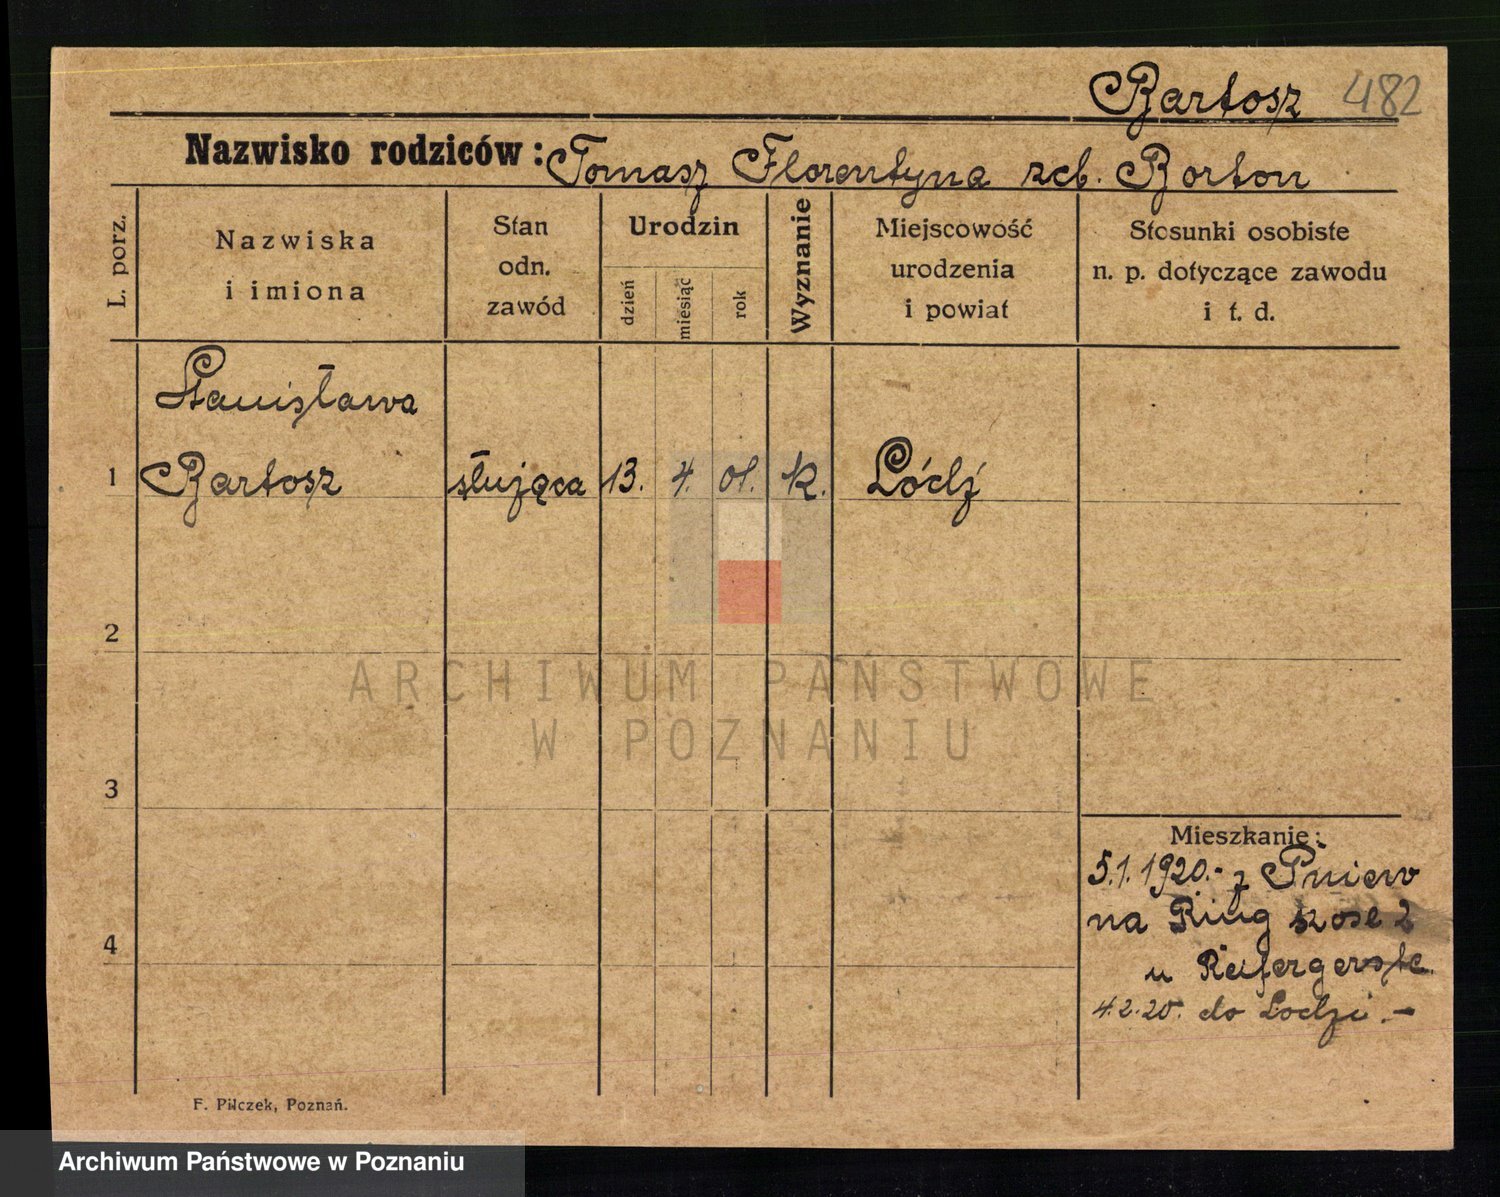 Bartosz 482
Nazwisko rodziców: Tomasz Florentyna Borton
L. porz.
Nazwiska i imiona
Stan odn. zawód
Urodzin
dzień
miesiąc
rok
Wyznanie
Miejscowość urodzenia i powiat
Stosunki osobiste n. p. dotyczące zawodu i t. d.
Stanisława
1 Bartosz służąca 13. 4. 01. k. Łódź
2
3
4
Mieszkanie:
5.1.1920.- z Pniew
na Ring 2
u
4.2.20. do Lodzi.-
F. Pilczek, Poznań.
ARCHIWUM PAŃSTWOWE
W POZNANIU
Archiwum Państwowe w Poznaniu